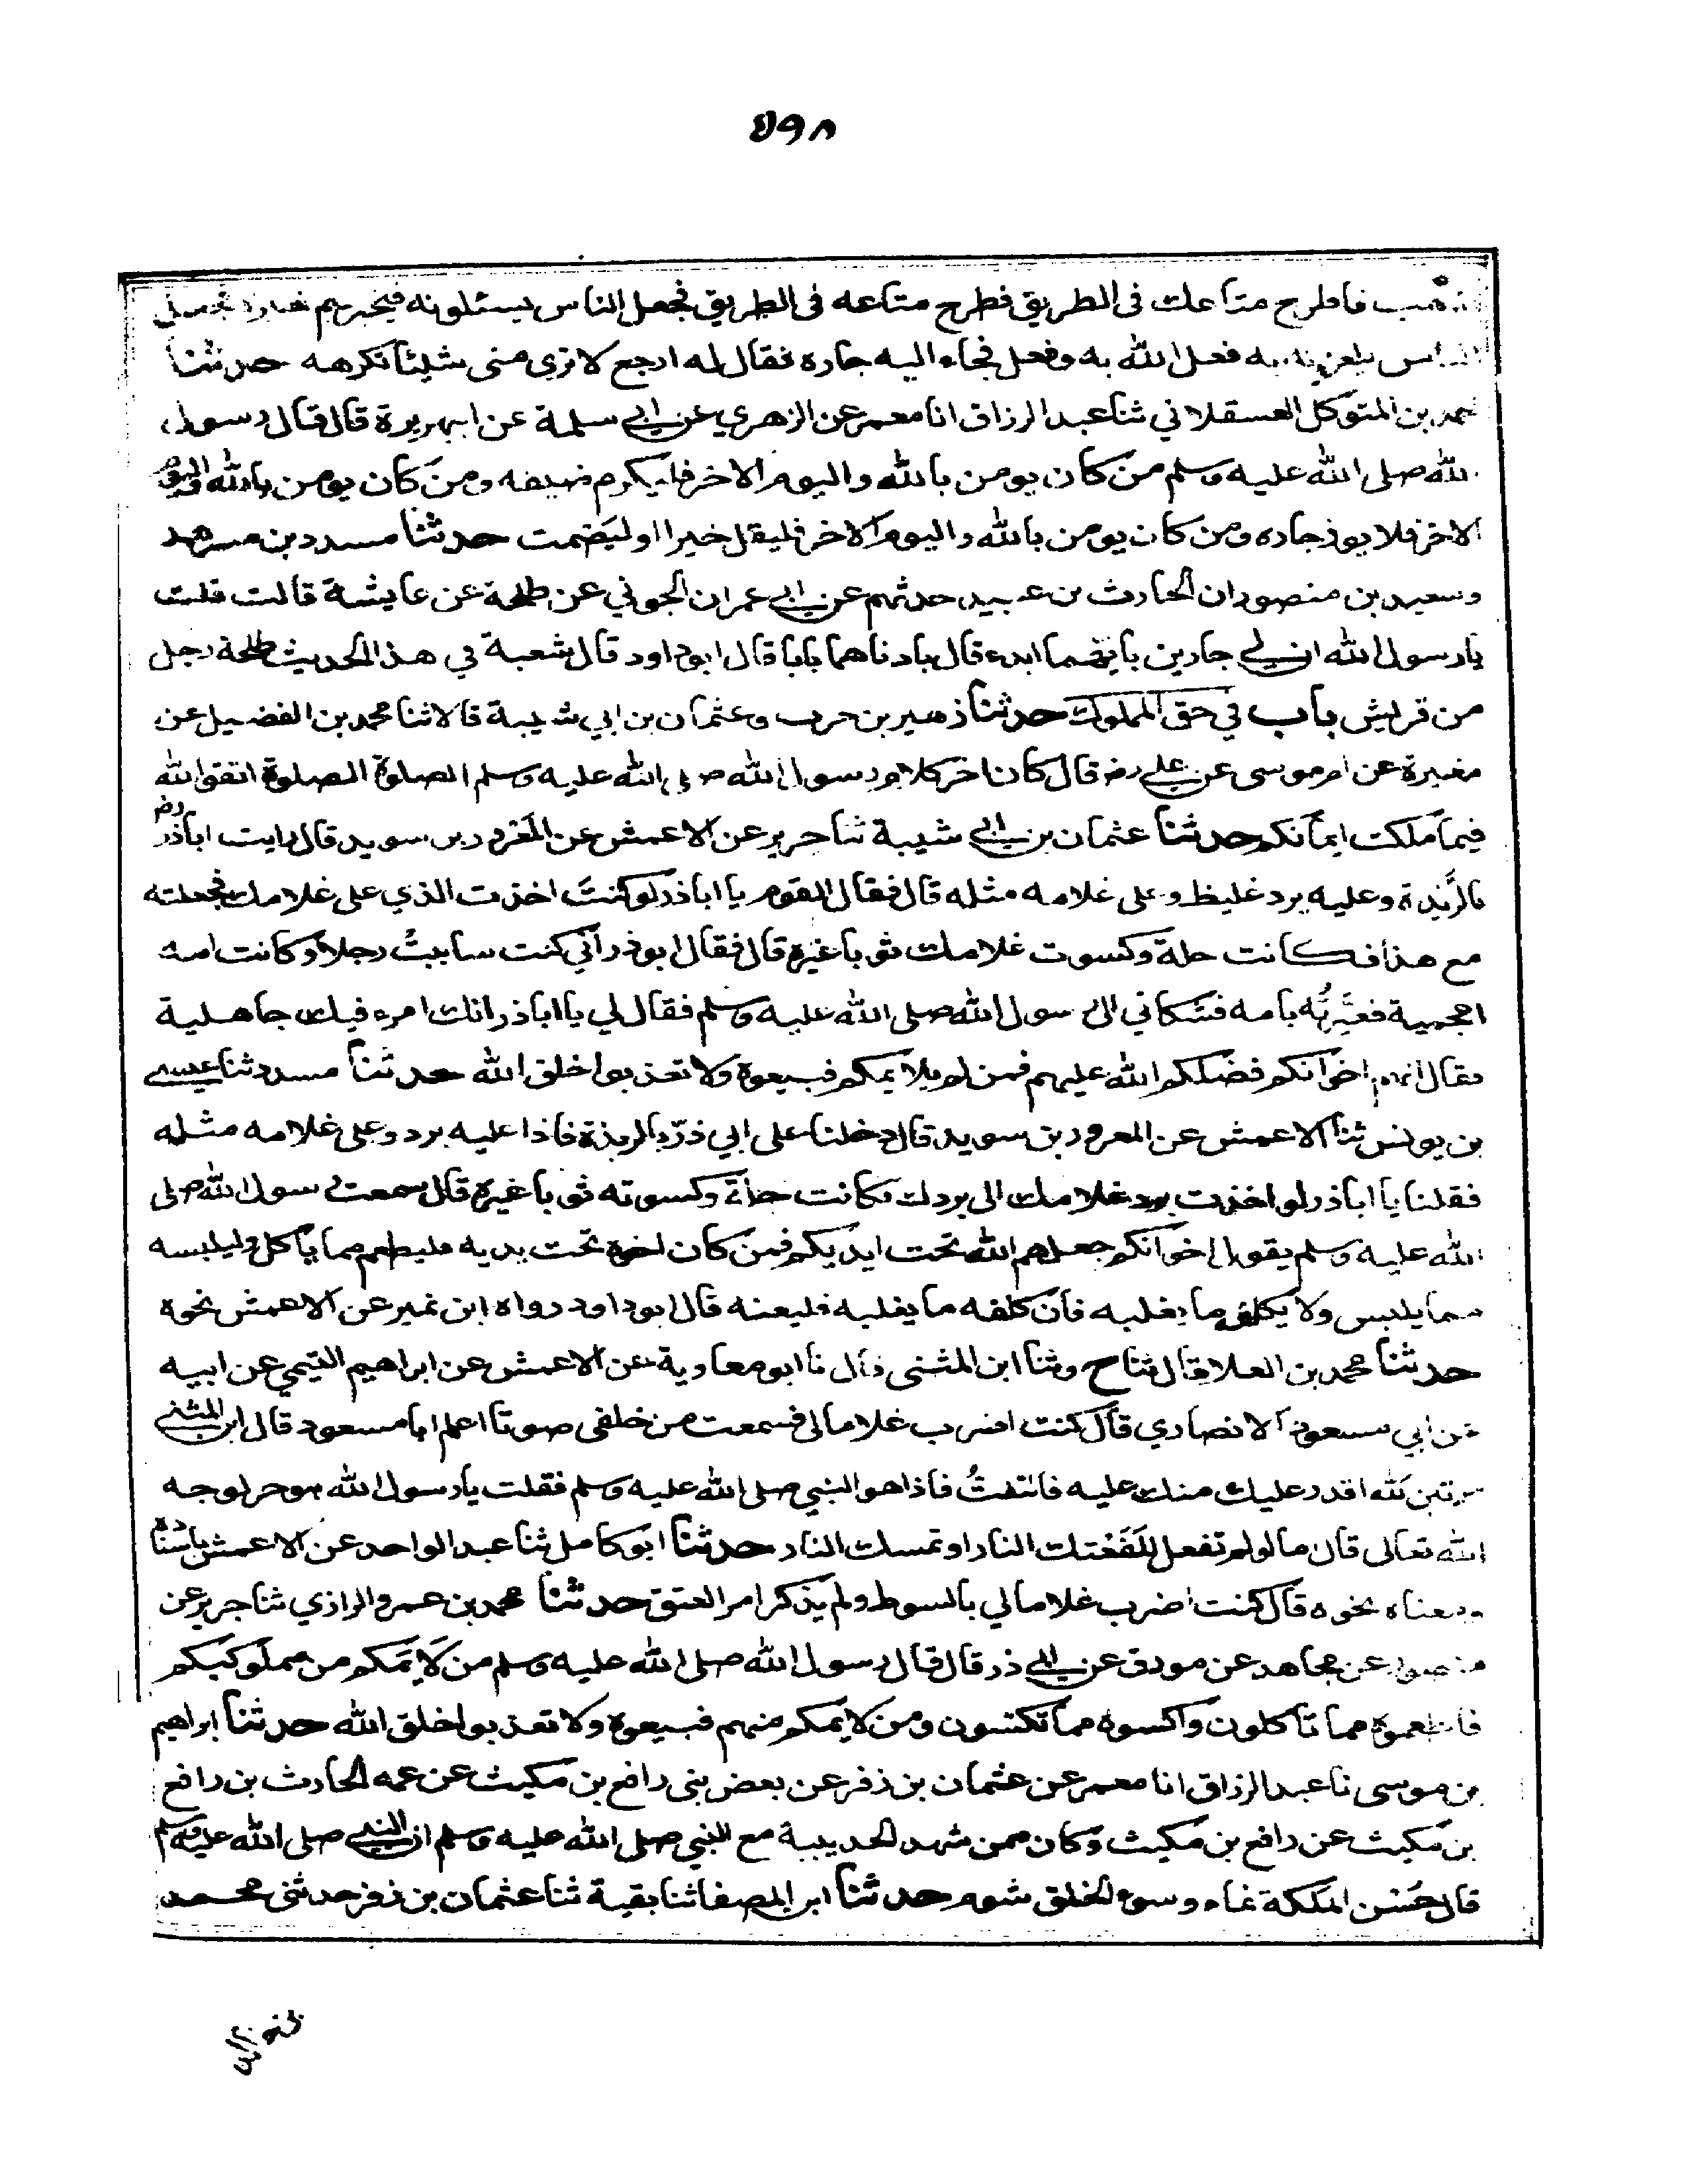 ٥٩٨
فاطرح متاعك فى الطريق فطرح متاعه فى الطريق فجعل الناس يسئلونه فيخبرهم
الناس فعل الله به وفعل فجاء اليه جاره فقال له ارجع لا ترى منى شيئا تكرهه حدثنا
محمد بن المتوكل العسقلاني ثنا عبد الرزاق انا معمر عن الزهري عن ابي سلمة عن ابي هريرة قال قال رسول
الله صلى الله عليه وسلم من كان يومن بالله واليوم الاخر فليكرم ضيفه ومن كان يومن بالله واليوم
الاخر فلا يوذ جاره ومن كان يومن بالله واليوم الاخر فليقل خيرا او ليصمت حدثنا مسدد بن مسرهد
وسعيد بن منصور ان الحارث بن عبيد حدثهم عن ابي عمران الجوني عن طلحة عن عايشة قالت قلت
يا رسول الله ان لي جارين بايهما ابدء قال بادناهما بابا قال ابو داود قال شعبة في هذا الحديث طلحة رجل
من قريش باب في حق المملوك حدثنا زهير بن حرب وعثمان بن ابي شيبة قالا ثنا محمد بن الفضيل عن
مغيرة عن ام موسى عن علي رضہ قال كان اخر كلام رسول الله صلى الله عليه وسلم الصلوة الصلوة اتقوا الله
فيما ملكت ايمانكم حدثنا عثمان بن ابي شيبة ثنا جرير عن الاعمش عن المعرور بن سويد قال رايت اباذر رضہ
بالربذة وعليه برد غليظ وعلى غلامه مثله قال فقال القوم يا اباذر لو كنت اخذت الذي على غلامك فجعلته
مع هذا فكانت حلة وكسوت غلامك ثوبا غيره قال فقال ابو ذر اني كنت ساببت رجلا وكانت امه
اعجمية فعيرته بامه فشكاني الى رسول الله صلى الله عليه وسلم فقال لي يا اباذر انك امرء فيك جاهلية
فقال انهم اخوانكم فضلكم الله عليهم فمن لم يلايمكم فبيعوه ولا تعذبوا خلق الله حدثنا مسدد ثنا عيسى
بن يونس ثنا الاعمش عن المعرور بن سويد قال دخلنا على ابي ذر بالربذة فاذا عليه برد وعلى غلامه مثله
فقلنا يا اباذر لو اخذت برد غلامك الى بردك فكانت حلة وكسوته ثوبا غيره قال سمعت رسول الله صلى
الله عليه وسلم يقول اخوانكم جعلهم الله تحت ايديكم فمن كان اخوه تحت يديه فليطعمه مما ياكل وليلبسه
مما يلبس ولا يكلفه ما يغلبه فان كلفه ما يغلبه فليعنه قال ابو داود رواه ابن نمير عن الاعمش نحوه
حدثنا محمد بن العلا قال ثنا ح وثنا ابن المثنى قال نا ابو معاوية عن الاعمش عن ابراهيم التيمي عن ابيه
عن ابي مسعود الانصاري قال كنت اضرب غلاما لى فسمعت من خلفى صوتا اعلم ابا مسعود قال ابن المثنى
مرتين لله اقدر عليك منك عليه فالتفت فاذا هو النبي صلى الله عليه وسلم فقلت يا رسول الله هو حر لوجه
الله تعالى قال ما لو لم تفعل للفعتك النار او لمسك النار حدثنا ابو كامل ثنا عبد الواحد عن الاعمش باسناده
ومعناه نحوه قال كنت اضرب غلاما لي بالسوط ولم يذكر امر العتق حدثنا محمد بن عمرو الرازي ثنا جرير عن
منصور عن مجاهد عن مورق عن ابي ذر قال قال رسول الله صلى الله عليه وسلم من لايمكم من مملوكيكم
فاطعموه مما تاكلون واكسوه مما تكتسون ومن لا يمكم منهم فبيعوه ولا تعذبوا خلق الله حدثنا ابراهيم
بن موسى نا عبد الرزاق انا معمر عن عثمان بن زفر عن بعض بنى رافع بن مكيث عن عمه الحارث بن رافع
بن مكيث عن رافع بن مكيث وكان ممن شهد الحديبية مع النبي صلى الله عليه وسلم ان النبي صلى الله عليه وسلم
قال حسن الملكة نماء وسوء الخلق شوم حدثنا ابن المصفا ثنا بقية ثنا عثمان بن زفر حدثنى محمد